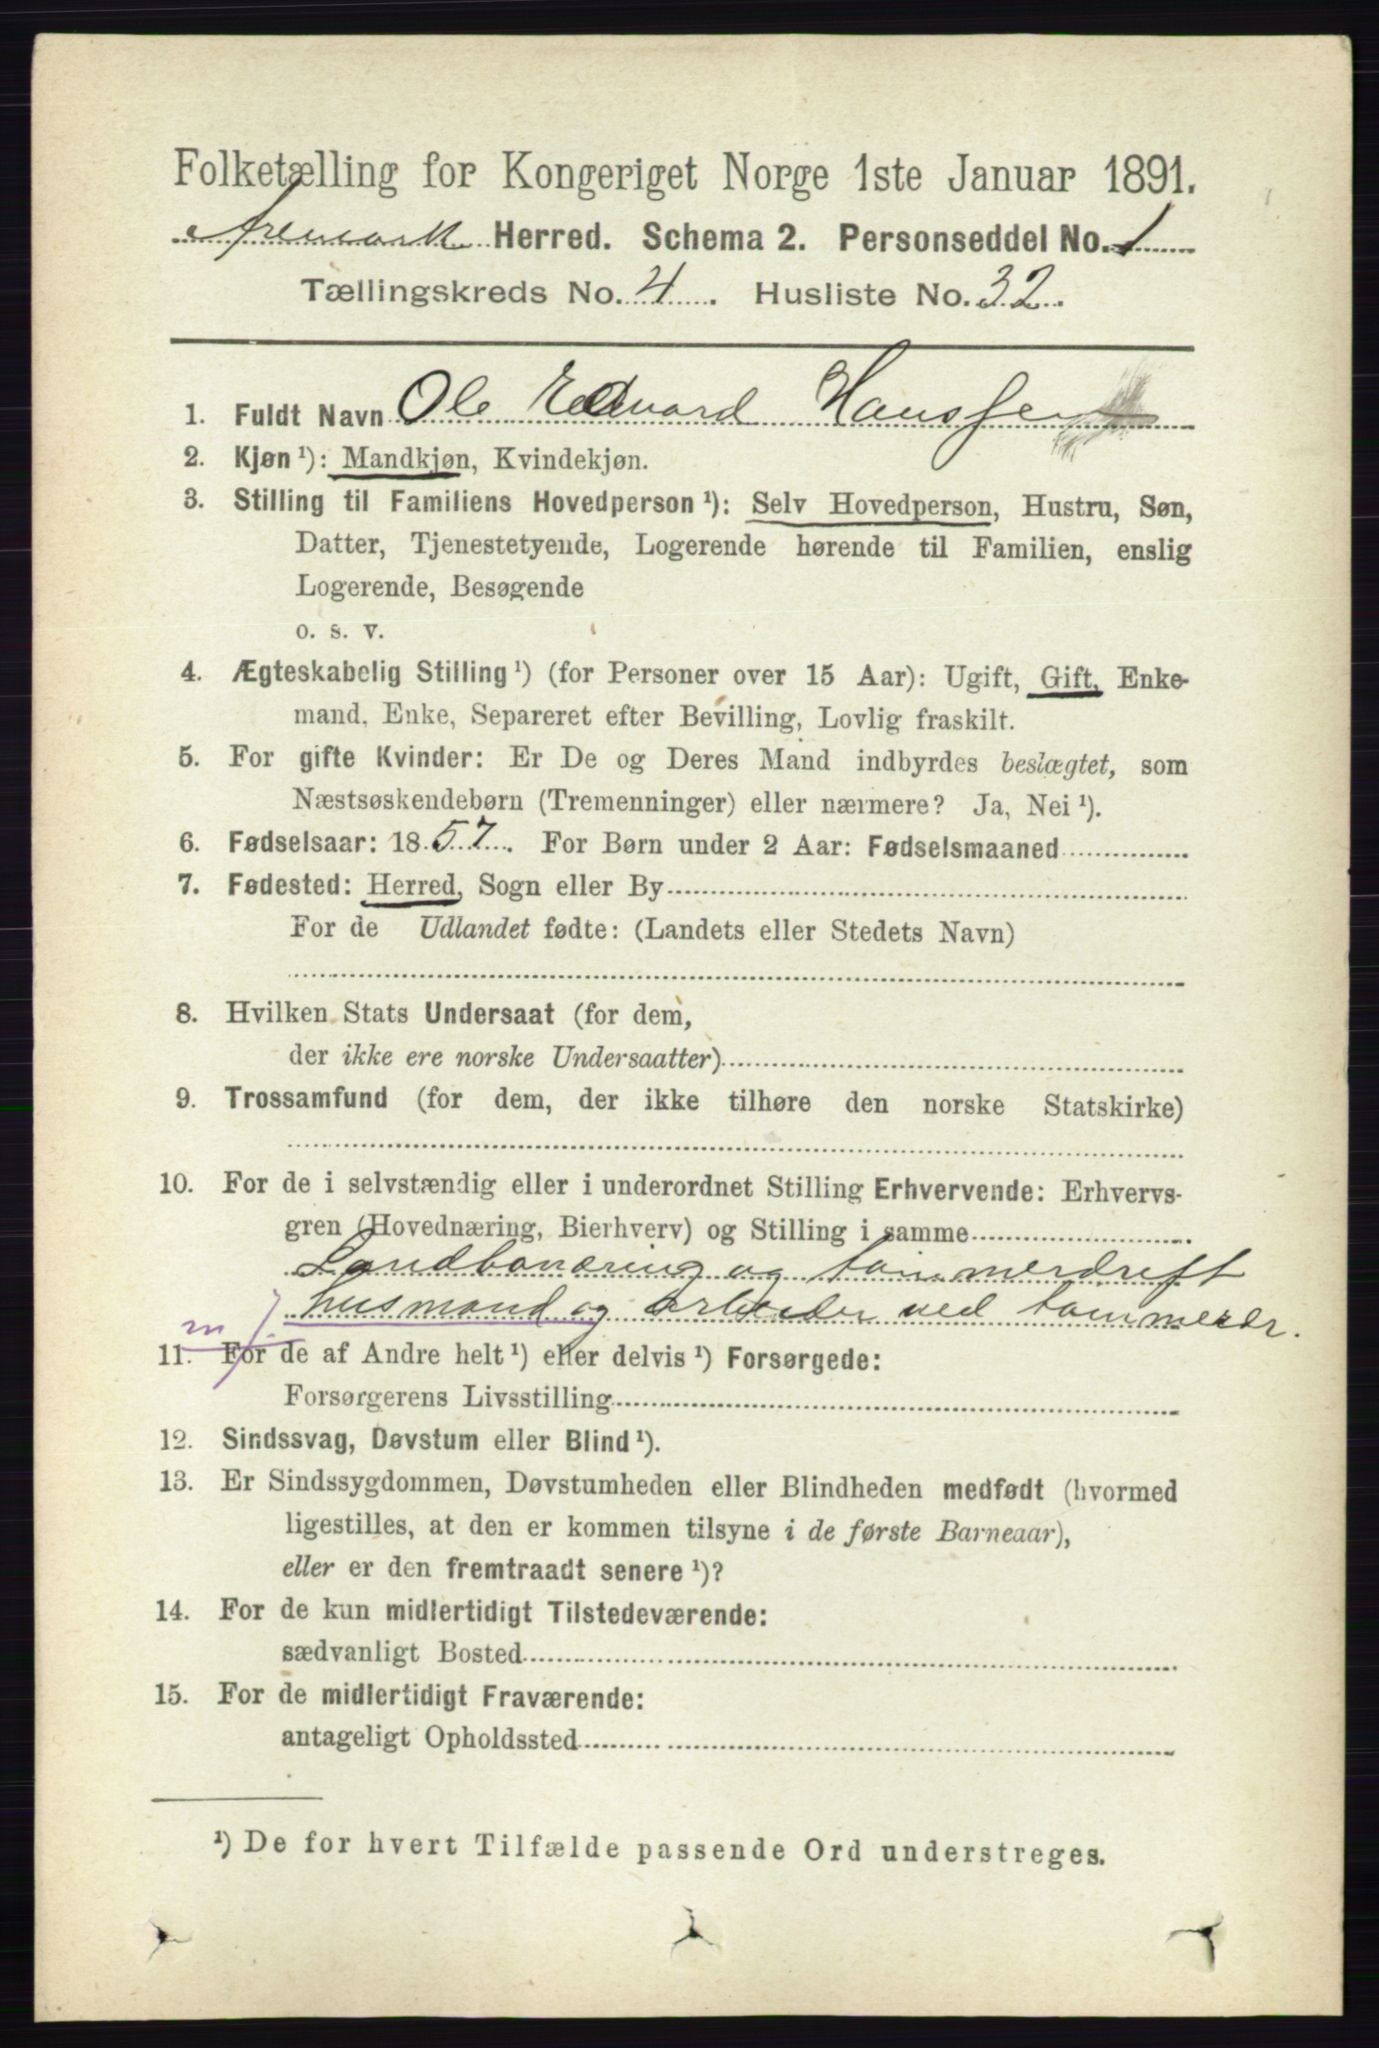 Folketælling for Kongeriget Norge 1ste Januar 1891.
Aremark Herred. Schema 2. Personseddel No. 1
Tællingskreds No. 4. Husliste No. 32.
1. Fuldt Navn Ole Edvard Hansen
2. Kjøn ¹): Mandkjøn, Kvindekjøn.
3. Stilling til Familiens Hovedperson ¹): Selv Hovedperson, Hustru, Søn,
Datter, Tjenestetyende, Logerende hørende til Familien, enslig
Logerende, Besøgende
o. s. v.
4. Ægteskabelig Stilling ¹) (for Personer over 15 Aar): Ugift, Gift, Enke-
mand, Enke, Separeret efter Bevilling, Lovlig fraskilt.
5. For gifte Kvinder: Er De og Deres Mand indbyrdes beslægtet, som
Næstsøskendebørn (Tremenninger) eller nærmere? Ja, Nei ¹).
6. Fødselsaar: 1857. For Børn under 2 Aar: Fødselsmaaned
7. Fødested: Herred, Sogn eller By
For de Udlandet fødte: (Landets eller Stedets Navn)
8. Hvilken Stats Undersaat (for dem,
der ikke ere norske Undersaatter)
9. Trossamfund (for dem, der ikke tilhøre den norske Statskirke)
10. For de i selvstændig eller i underordnet Stilling Erhvervende: Erhvervs-
gren (Hovednæring, Bierhverv) og Stilling i samme
Landbonæring og tømmerdrift
husmand og arbeider ved
11. For de af Andre helt ¹) eller delvis ¹) Forsørgede:
Forsørgerens Livsstilling
12. Sindssvag, Døvstum eller Blind ¹).
13. Er Sindssygdommen, Døvstumheden eller Blindheden medfødt (hvormed
ligestilles, at den er kommen tilsyne i de første Barneaar),
eller er den fremtraadt senere ¹)?
14. For de kun midlertidigt Tilstedeværende:
sædvanligt Bosted
15. For de midlertidigt Fraværende:
antageligt Opholdssted
¹) De for hvert Tilfælde passende Ord understreges.